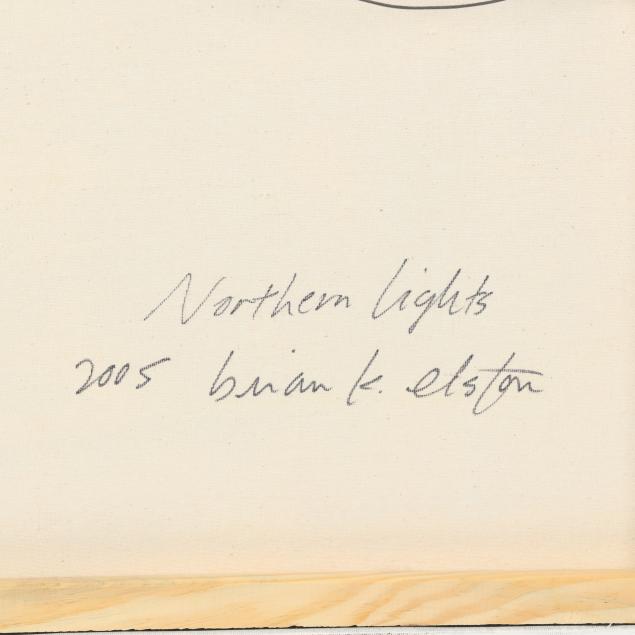 Northern lights
2005 brian k. elston